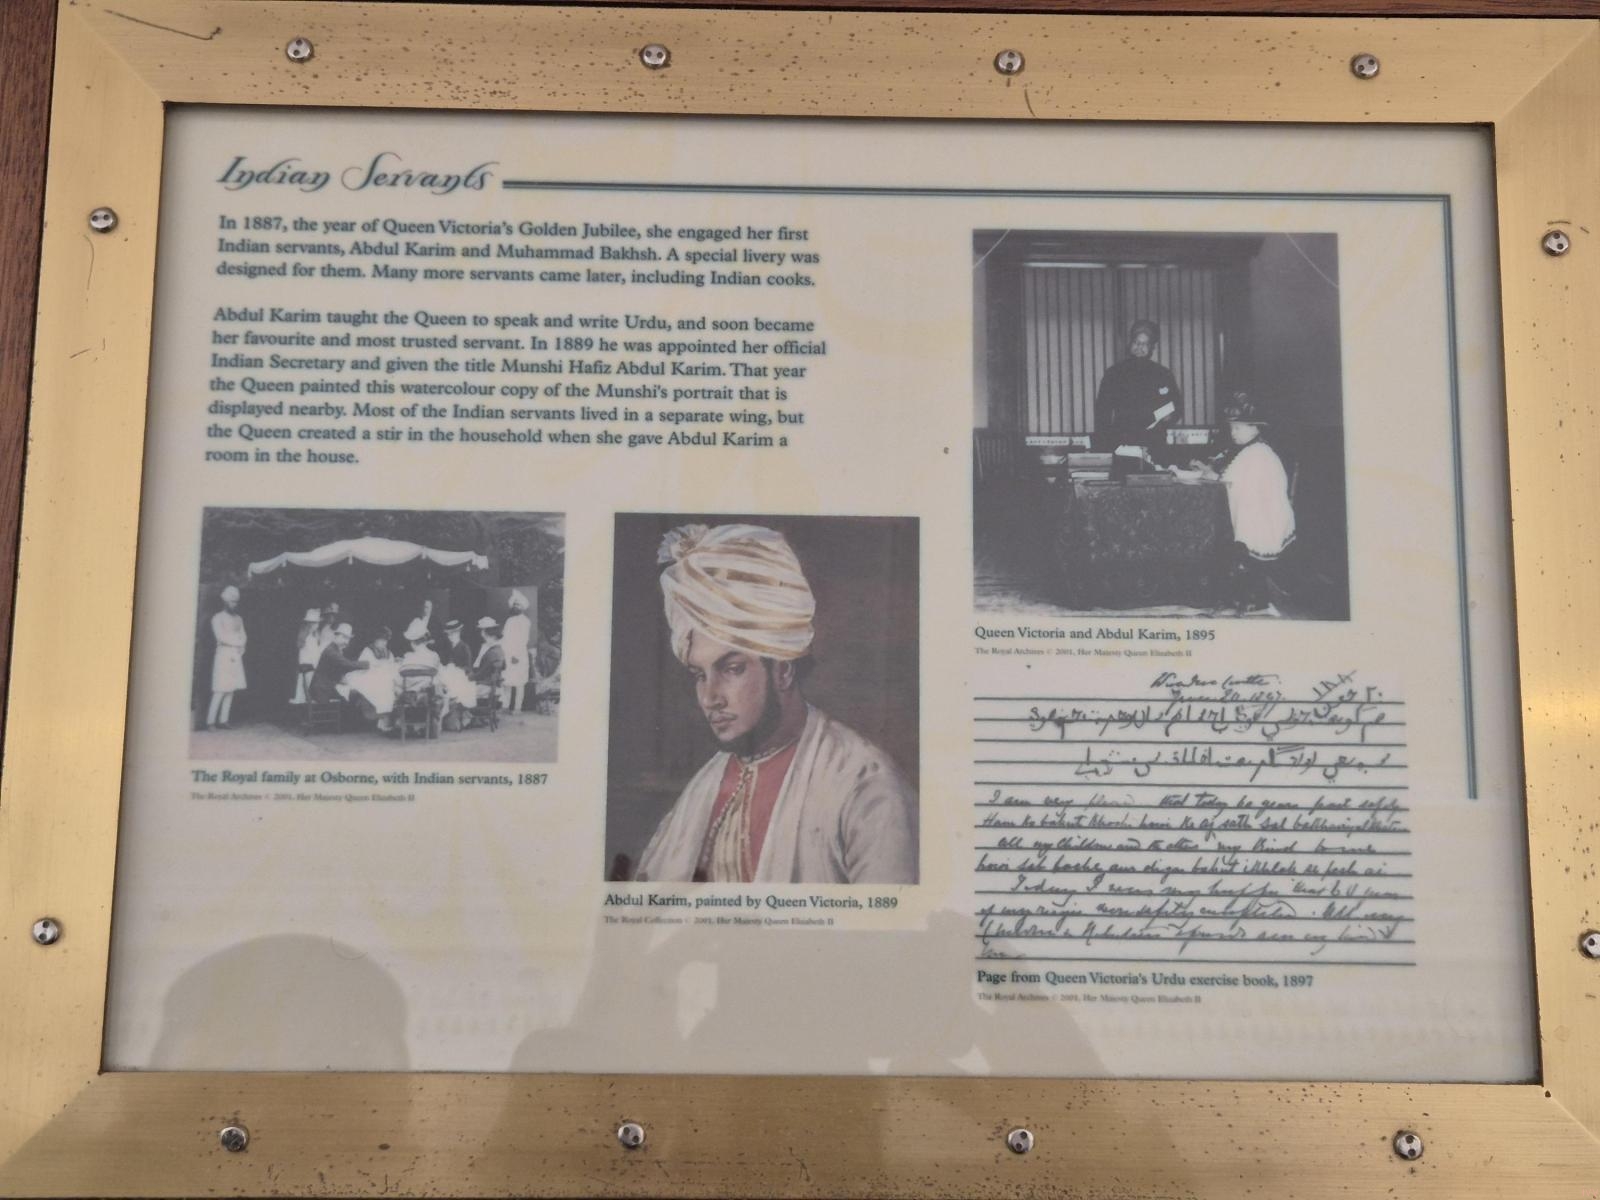 Indian Servants
In 1887, the year of Queen Victoria's Golden Jubilee, she engaged her first
Indian servants, Abdul Karim and Muhammad Bakhsh. A special livery was
designed for them. Many more servants came later, including Indian cooks.
Abdul Karim taught the Queen to speak and write Urdu, and soon became
her favourite and most trusted servant. In 1889 he was appointed her official
Indian Secretary and given the title Munshi Hafiz Abdul Karim. That year
the Queen painted this watercolour copy of the Munshi's portrait that is
displayed nearby. Most of the Indian servants lived in a separate wing, but
the Queen created a stir in the household when she gave Abdul Karim a
room in the house.
The Royal family at Osborne, with Indian servants, 1887
The Royal Archives © 2001, Her Majesty Queen Elizabeth II
Abdul Karim, painted by Queen Victoria, 1889
The Royal Collection © 2001, Her Majesty Queen Elizabeth II
Queen Victoria and Abdul Karim, 1895
The Royal Archives © 2001, Her Majesty Queen Elizabeth II
I am very that today 60 years past safely
all my Children and the others kind to me
Today I very happy that
of my reign completed. All my
Page from Queen Victoria's Urdu exercise book, 1897
The Royal Archives © 2001, Her Majesty Queen Elizabeth II